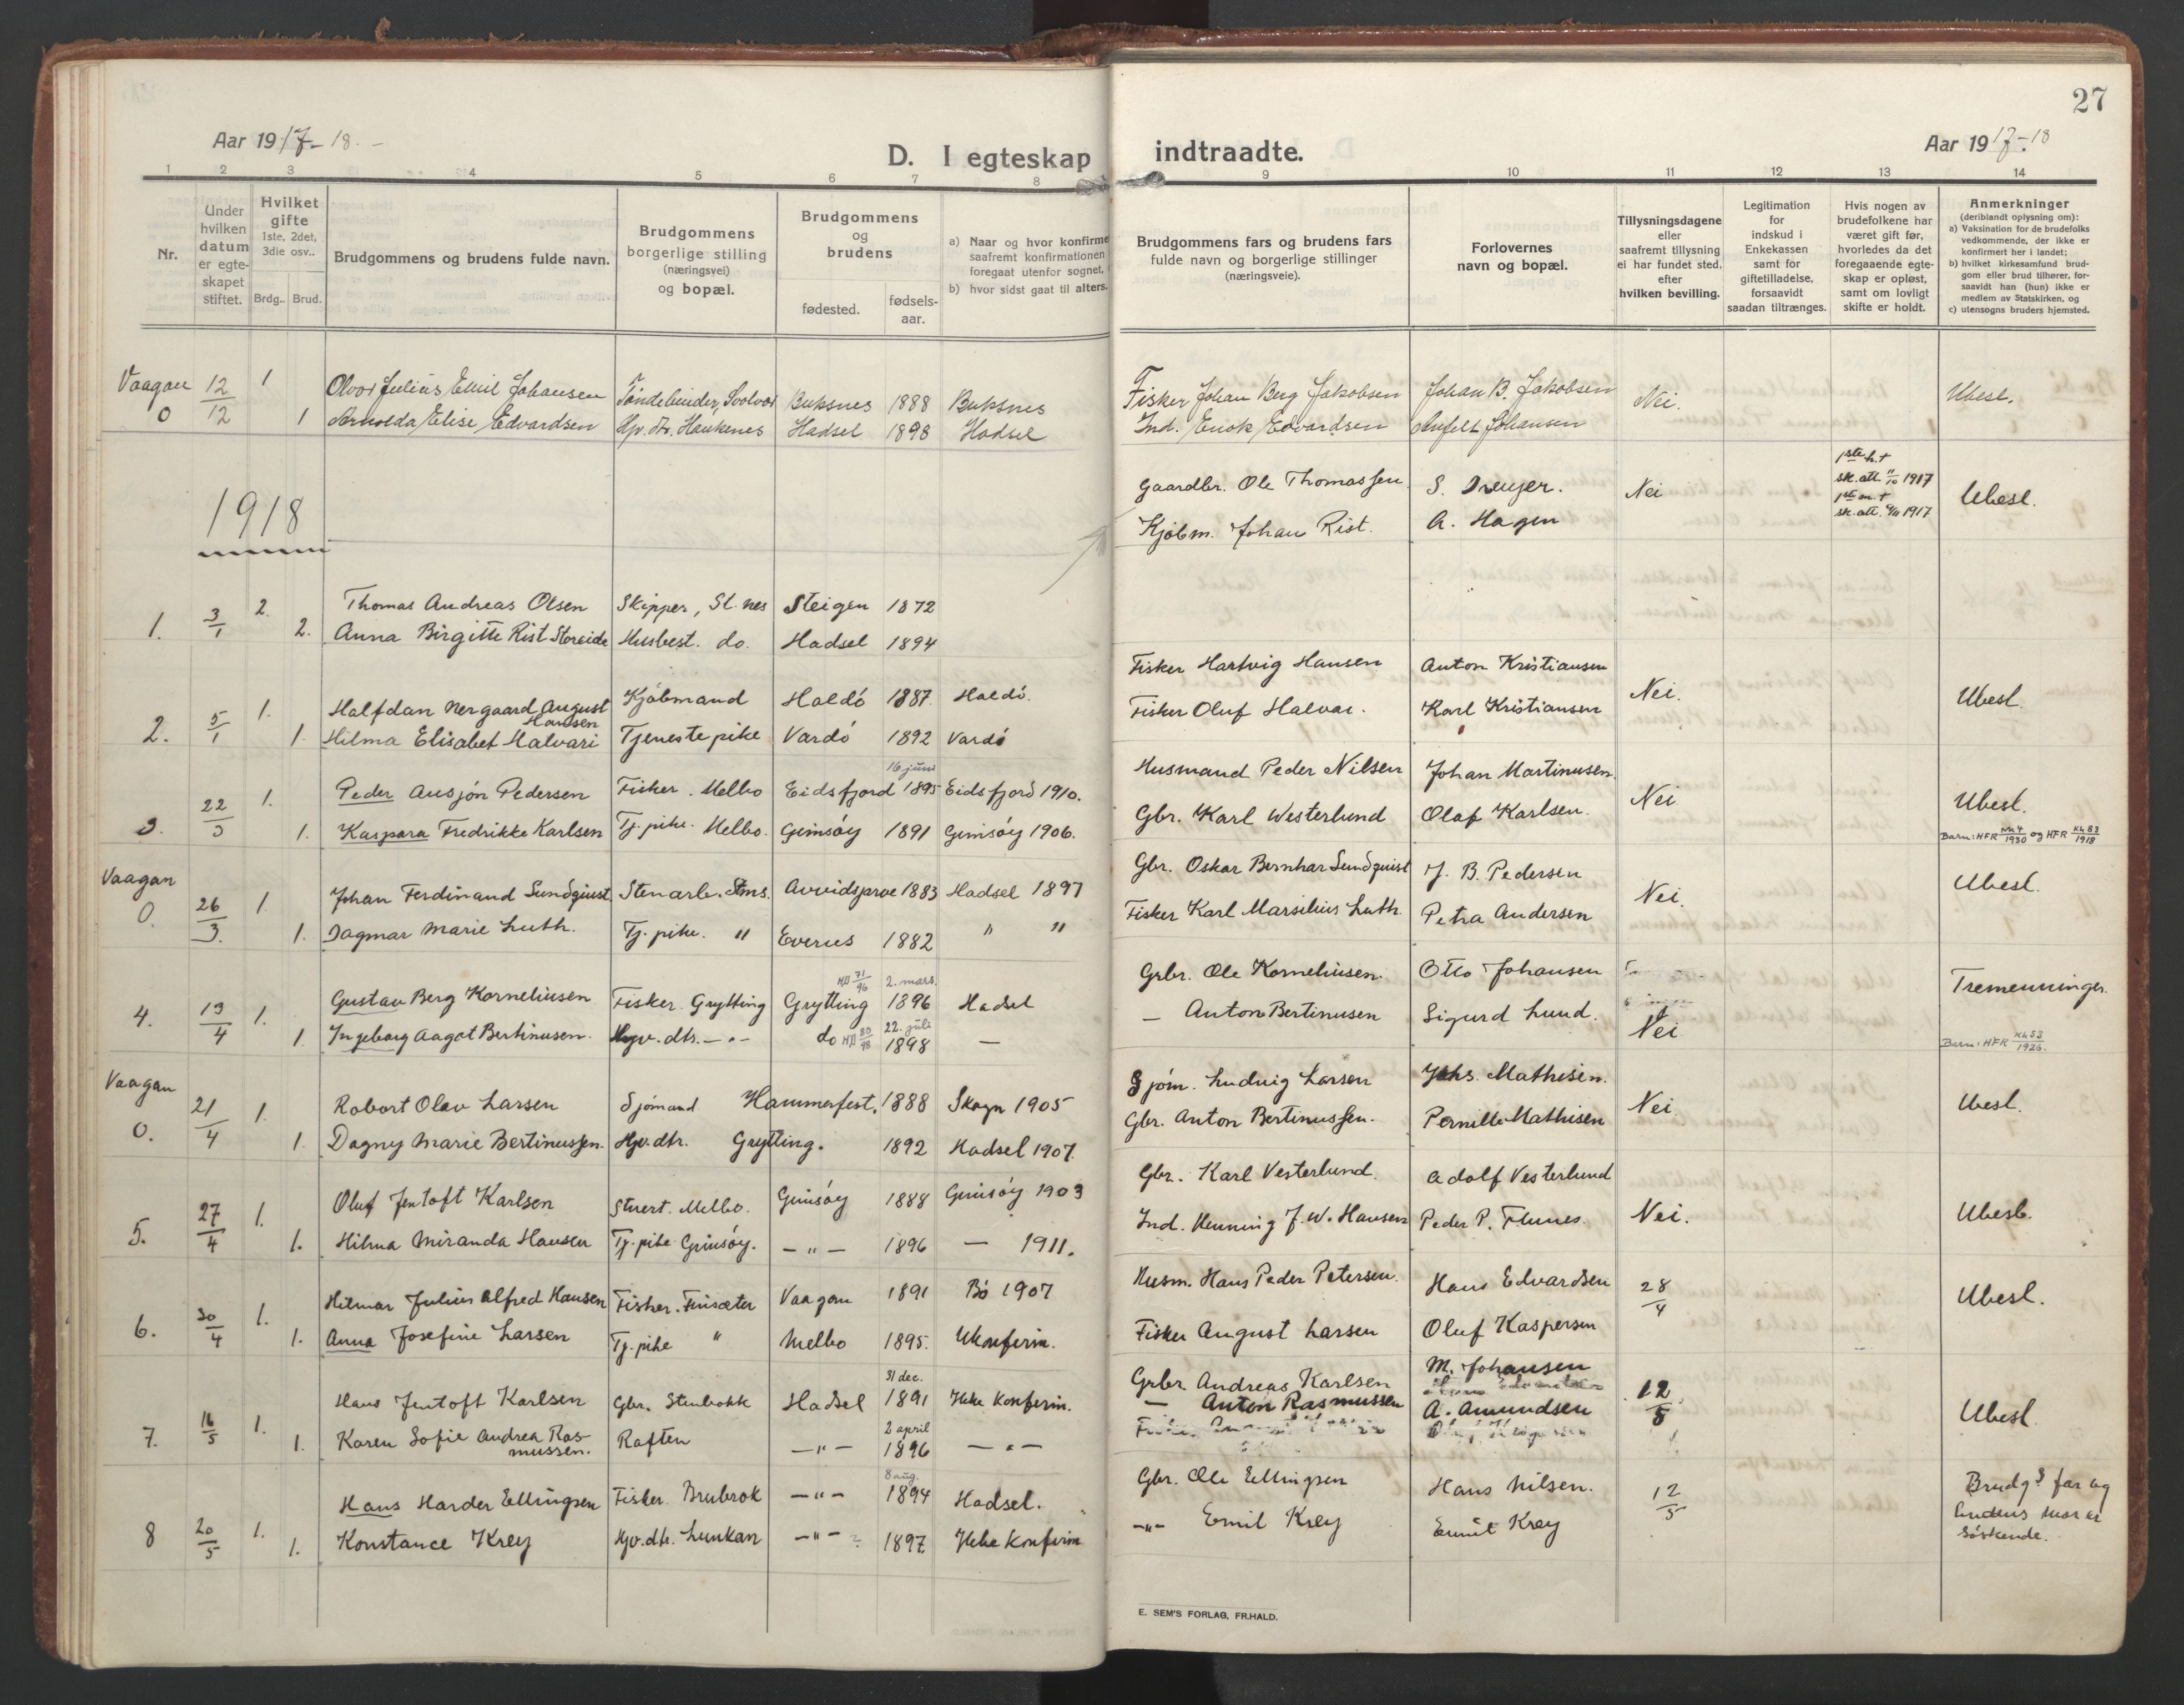 27
Aar 1917-18.-
D. I egteskap indtraadte.
Aar 1917-18
1 2 3 4 5 6 7 8 9 10 11 12 13 14
Nr.
Under hvilken datum er egte-skapet stiftet.
Hvilket gifte
1ste, 2det, 3die osv..
Brdg.. Brud.
Brudgommens og brudens fulde navn.
Brudgommens borgerlige stilling (næringsvei) og bopæl.
Brudgommens og brudens
fødested.
fødsels-aar.
a) Naar og hvor konfirme
saafremt konfirmationen
foregaat utenfor sognet,
b) hvor sidst gaat til alters.
Brudgommens fars og brudens fars
fulde navn og borgerlige stillinger
(næringsveie).
Forlovernes
navn og bopæl.
Tillysningsdagene
eller
saafremt tillysning
ei har fundet sted,
efter
hvilken bevilling.
Legitimation
for
indskud i
Enkekassen
samt for
giftetilladelse,
forsaavidt
saadan tiltrænges.
Hvis nogen av
brudefolkene har
været gift før,
hvorledes da det
foregaaende egte-
skap er opløst,
samt om lovligt
skifte er holdt.
Anmerkninger
(deriblandt oplysning om):
a) Vaksination for de brudefolks
vedkommende, der ikke er
konfirmert her i landet;
b) hvilket kirkesamfund brud-
gom eller brud tilhører, for-
saavidt han (hun) ikke er
medlem av Statskirken, og
c) utensogns bruders hjemsted.
Vaagan 12/12 1 Olvar Julius Emil Johansen Tøndebinder, Svolvær Buksnes 1888 Buksnes Fisker Johan Berg Jakobsen Johan B. Jakobsen Nei. Ubesl.
0 1 Arnolda Elise Edvardsen Hjv. dtr. Haukenes Hadsel 1898 Hadsel Ind. Enok Edvardsen Anfelt Johansen
1918
Gaardbr. Ole Thomassen S. Dreyer. Nei 1ste h. † sk. att. 11/10 1917 Ubesl.
Kjøbm. Johan Rist. A. Hagen 1ste m. † sk. att. 1917
1. 3/1 2. Thomas Andreas Olsen Skipper, St.nes Steigen 1872
2. Anna Birgitte Rist Storeide Husbest. do. Hadsel 1894
2. 5/1 1. Halfdan Nergaard August Hansen Kjøbmand Haldø 1887. Haldø. Fisker Hartvig Hansen Anton Kristiansen Nei. Ubesl.
1. Hilma Elisabet Halvari Tjenestepike Vardø 1892 Vardø Fisker Oluf Halvar. Karl Kristiansen
3. 22/3 1. Peder Ausjön Pedersen Fisker. Melbo Eidsfjord 16 juni 1895 Eidsfjord 1910. Husmand Peder Nilsen Johan Martinusen. Nei Ubesl.
1. Kaspara Fredrikke Karlsen Tj. pike. Melbo. Gimsøy 1891 Gimsøy 1906. Gbr. Karl Westerlund Olaf Karlsen. Barn: HFR Nr. 4/1930 og HFR Kl. 83/1918
Vaagan
0. 26/3. 1. Johan Ferdinand Sundquist Stenarb. Stms. Avvidsjarve 1883 Hadsel 1897 Gbr. Oskar Bernhar Sundquist J. B. Pedersen Nei. Ubesl.
1. Dagmar Marie Luth. Tj. pike. " Evenes 1882 " " Fisker Karl Marsilius Luth. Petra Andersen
4. 13/4 1. Gustav Berg Korneliusen Fisker Grytting Grytting 71/96 2. mars. 1896 Hadsel Grbr. Ole Korneliusen. Otto Johansen Tremenninger.
1. Ingeborg Aagot Bertinusen. Hjv. dtr. -"- do 80/98 22. juli 1898 — — Anton Bertinusen Sigurd Lund. Nei Barn: HFR Kl. 53/1926.
Vaagan
0. 21/4 1. Robert Olav Larsen Sjømand Hammerfest. 1888 Skogn 1905 Sjøm. Ludvig Larsen Johs. Mathisen. Nei Ubesl.
1. Dagny Marie Bertinussen. Hjv. dtr. Grytting. 1892 Hadsel 1907. Gbr. Anton Bertinussen. Pernille Mathisen
5. 27/4 1. Oluf Jentoft Karlsen Stuert. Melbo. Gimsøy 1888 Gimsøy 1903 Gbr. Karl Vesterlund. Adolf Vesterlund Nei. Ubesl.
1. Hilma Miranda Hansen Tj. pike Gimsøy. —"— 1896 — 1911. Ind. Henning J. W. Hansen Peder P. Flunes.
6. 30/4 1. Hilmar Julius Alfred Hansen Fisker. Finsæter Vaagan 1891 Bø 1907 Husm. Hans Peder Petersen. Hans Edvardsen 28/4 Ubesl.
1. Anna Josefine Larsen Tj. pike " Melbo 1895. Ukonfirm. Fisker August Larsen Oluf Kaspersen
7. 16/5 1. Hans Jentoft Karlsen Gbr. Stenbakk Hadsel 31 dec. 1891 Ikke konfirm. Grbr. Andreas Karlsen M. Johansen 12/5 Ubesl.
1. Karen Sofie Andrea Rasmussen. Raften —"— 2 april 1896 —"— — Anton Rasmussen A. Amundsen
8 20/5 1. Hans Harder Ellingsen Fisker Brubrok —"— 8 aug. 1894 Hadsel. Gbr. Ole Ellingsen Hans Nilsen. 12/5 Brudg.s far og
1. Konstance Krey Hjv. dtr. Lunkan —"— 1897 Ikke konfirm —"— Emil Krey Emil Krey brudens mor er søskende.
E. SEM'S FORLAG, FR.HALD.